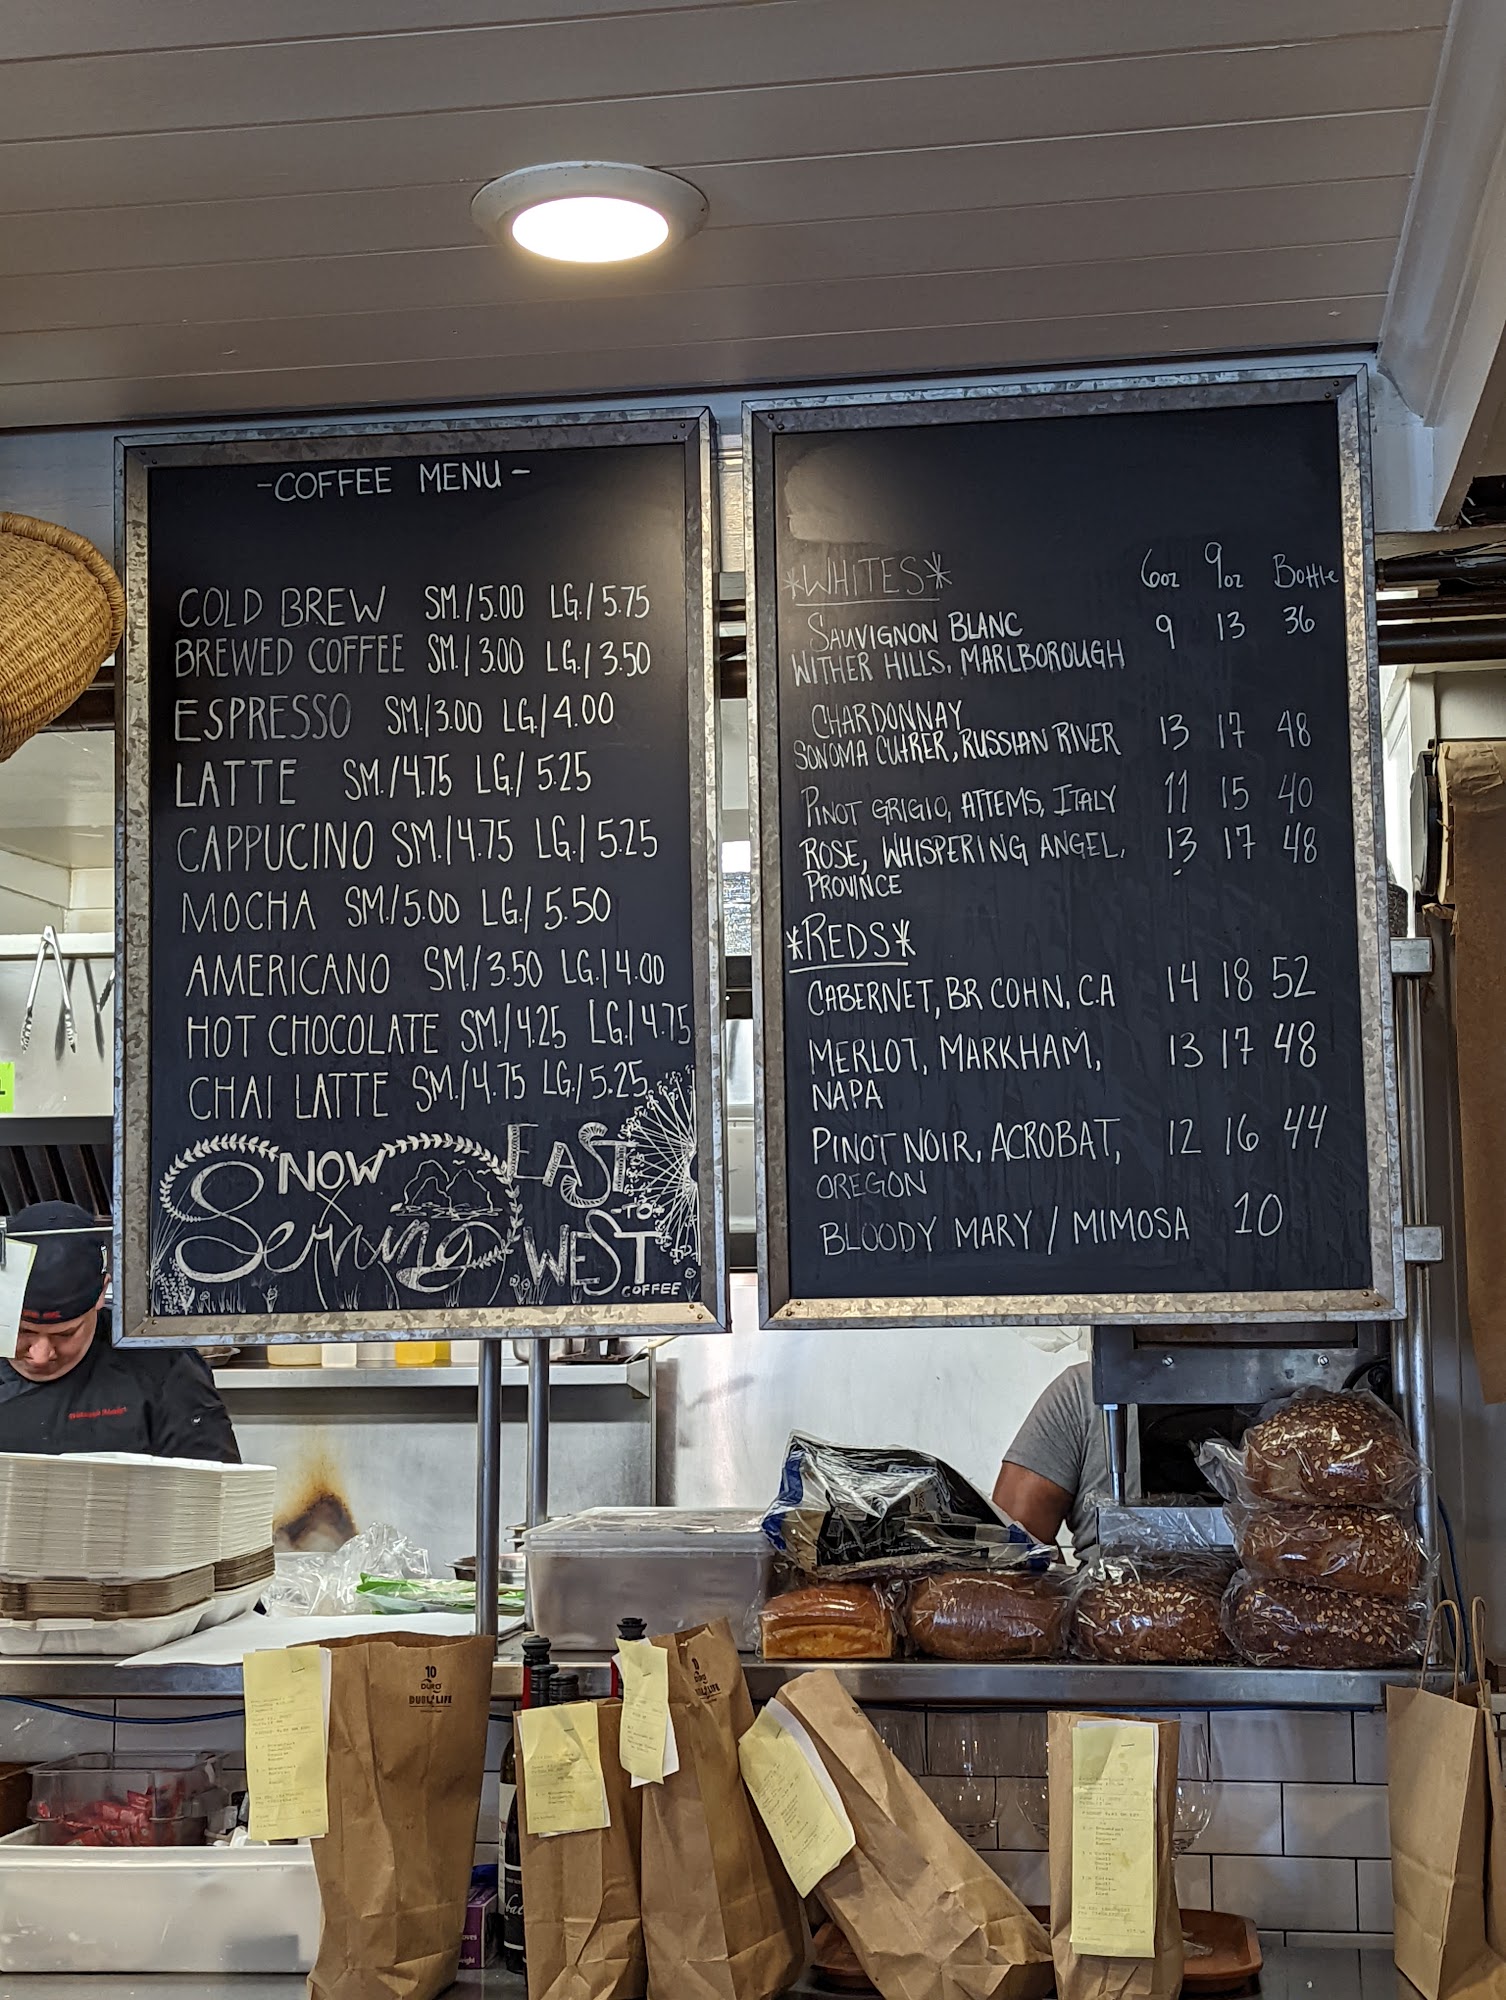 -COFFEE MENU-
COLD BREW SM./5.00 LG./5.75
BREWED COFFEE SM./3.00 LG./3.50
ESPRESSO SM./3.00 LG./4.00
LATTE SM./4.75 LG./5.25
CAPPUCINO SM./4.75 LG./5.25
MOCHA SM./5.00 LG./5.50
AMERICANO SM./3.50 LG./4.00
HOT CHOCOLATE SM./4.25 LG./4.75
CHAI LATTE SM./4.75 LG./5.25
NOW
Serving
EAST
-TO-
WEST
COFFEE
*WHITES* 6oz 9oz Bottle
SAUVIGNON BLANC 9 13 36
WITHER HILLS, MARLBOROUGH
CHARDONNAY
SONOMA CUTRER, RUSSIAN RIVER 13 17 48
PINOT GRIGIO, ATTEMS, ITALY 11 15 40
ROSE, WHISPERING ANGEL, 13 17 48
PROVINCE
*REDS*
CABERNET, BR COHN, CA 14 18 52
MERLOT, MARKHAM, 13 17 48
NAPA
PINOT NOIR, ACROBAT, 12 16 44
OREGON
BLOODY MARY / MIMOSA 10
10
DURO
DUBL LIFE